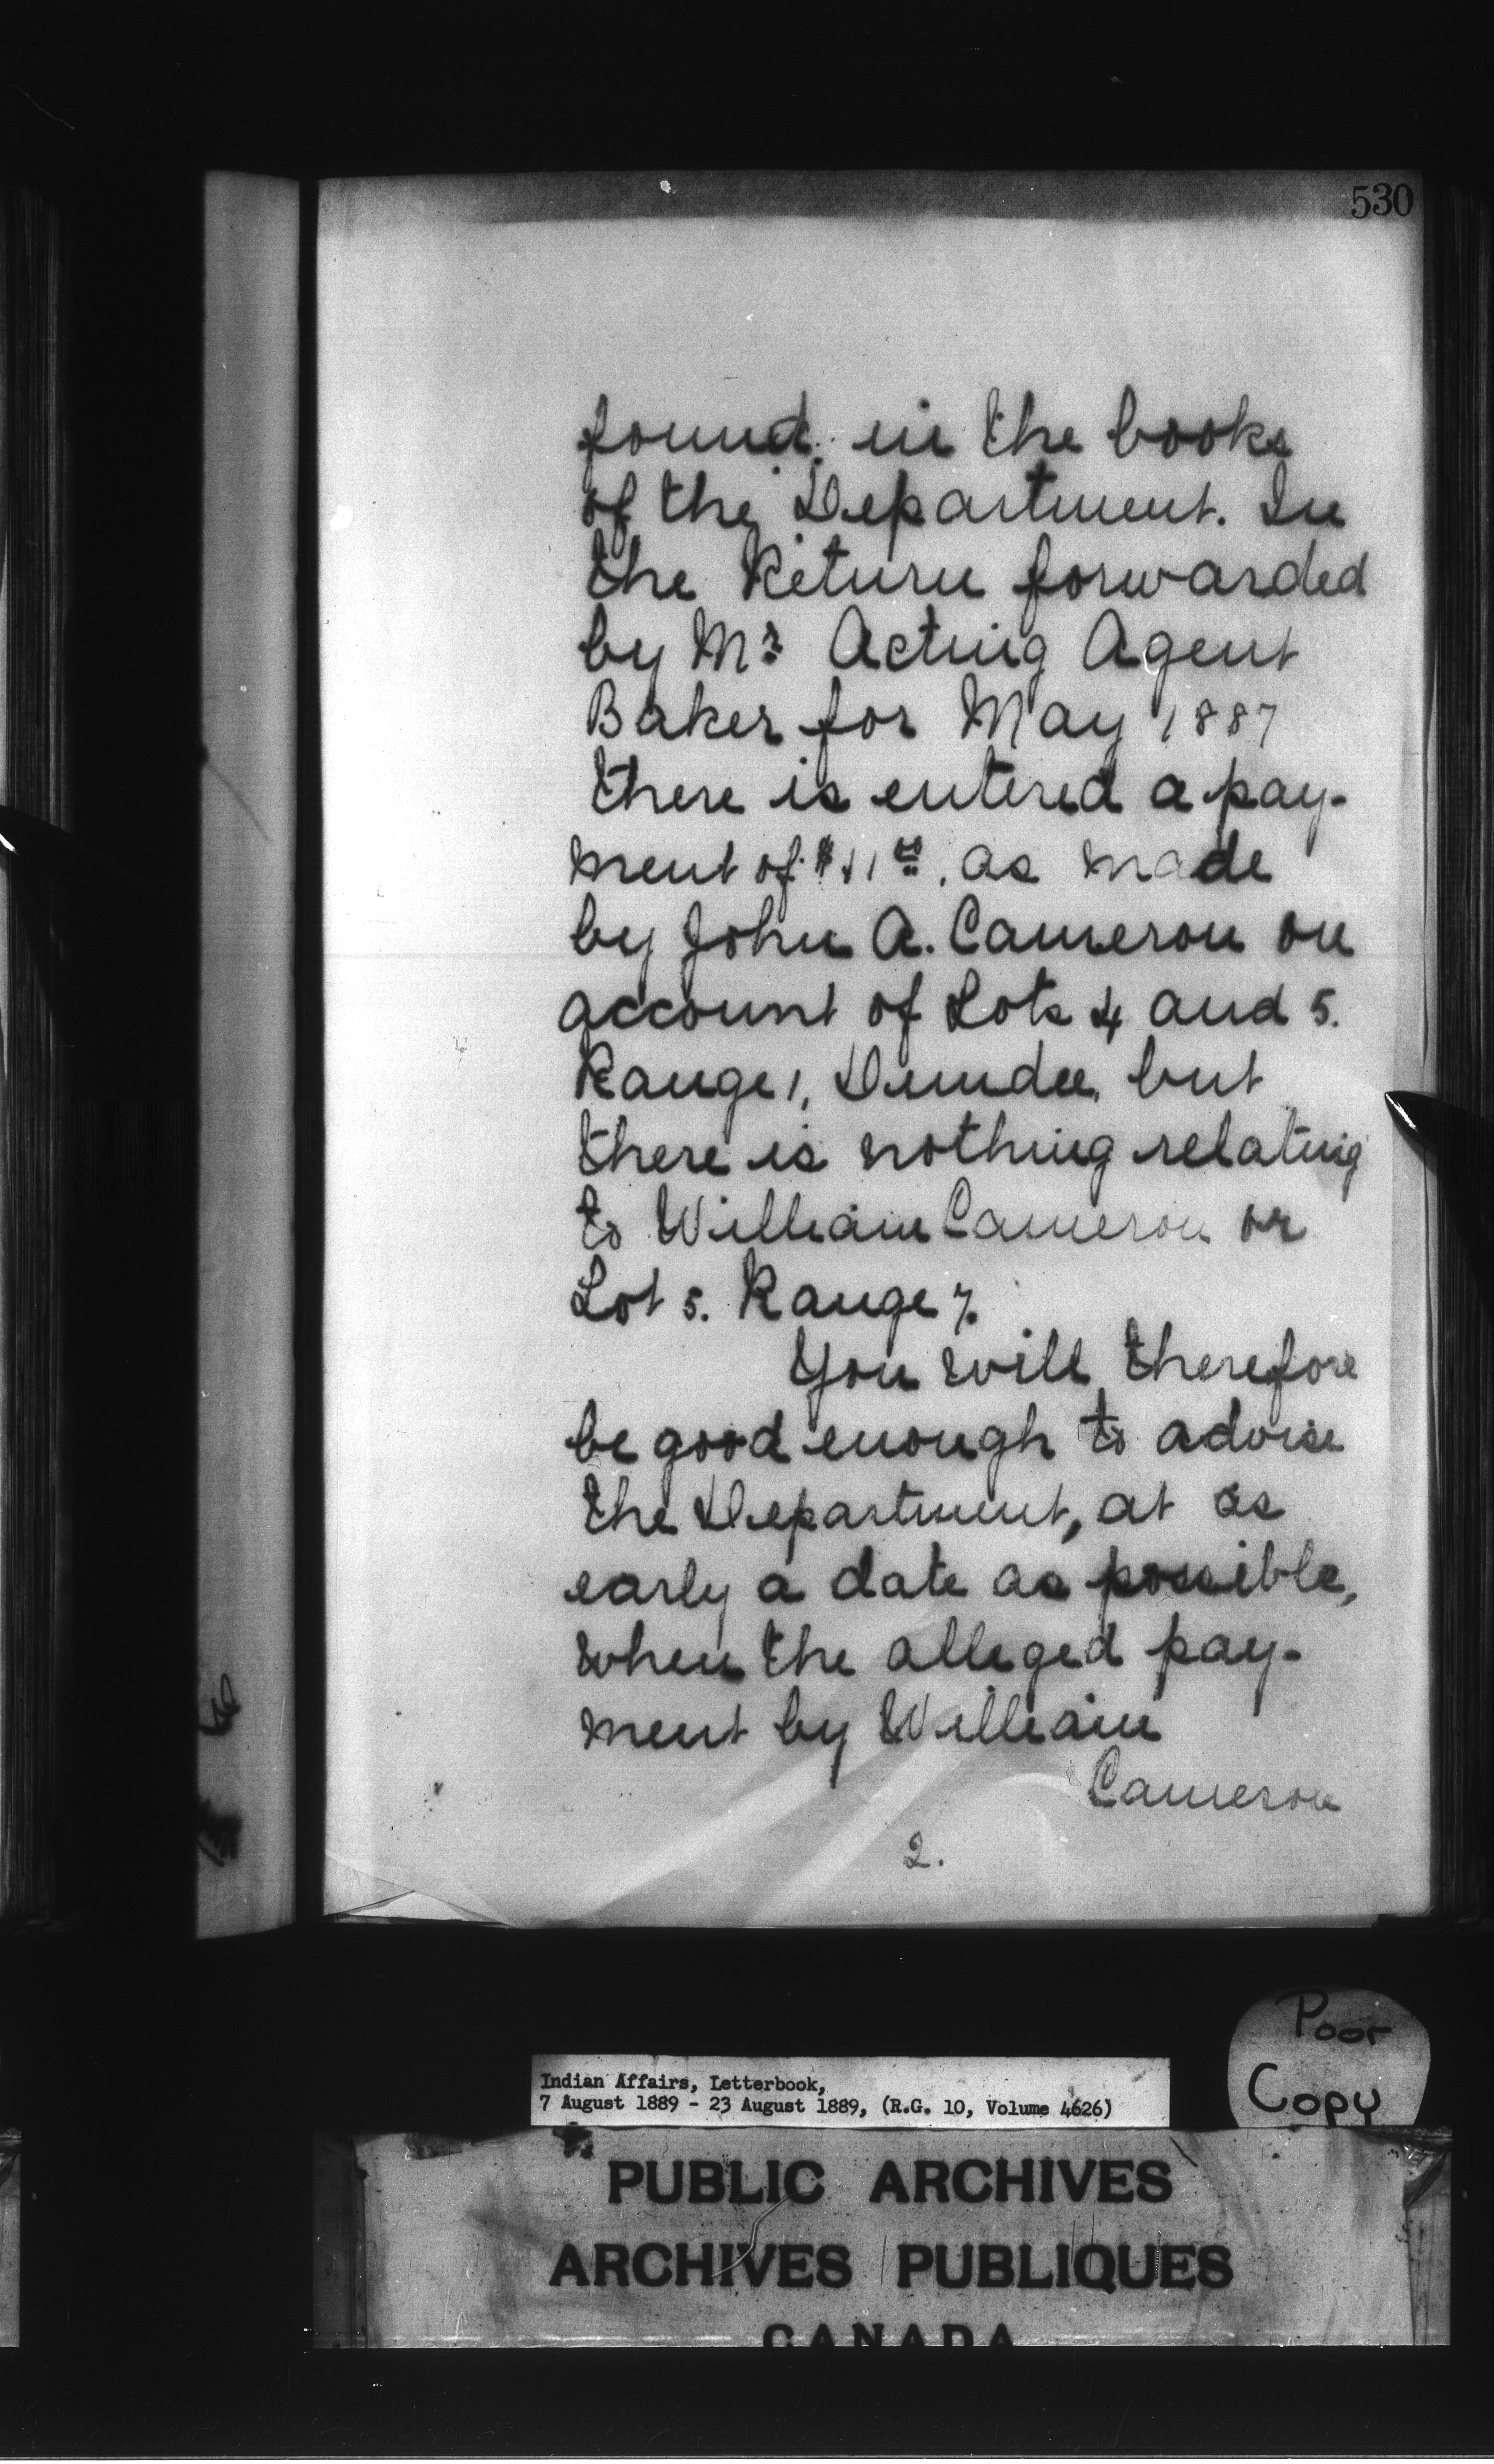 530
found in the books
of the Department. In
the Return forwarded
by Mr Acting Agent
Baker for May 1887
there is entered a pay-
ment of as made
by John A. Cameron on
account of Lots 4 and 5.
Range 1, Dundee, but
there is nothing relating
to William Cameron or
Lot 5. Range 7.
You will therefore
be good enough to advise
the Department, at as
early a date as possible,
when the alleged pay-
ment by William
Cameron
2.
Poor
Copy
Indian Affairs, Letterbook,
7 August 1889 - 23 August 1889, (R.G. 10, Volume 4626)
PUBLIC ARCHIVES
ARCHIVES PUBLIQUES
CANADA